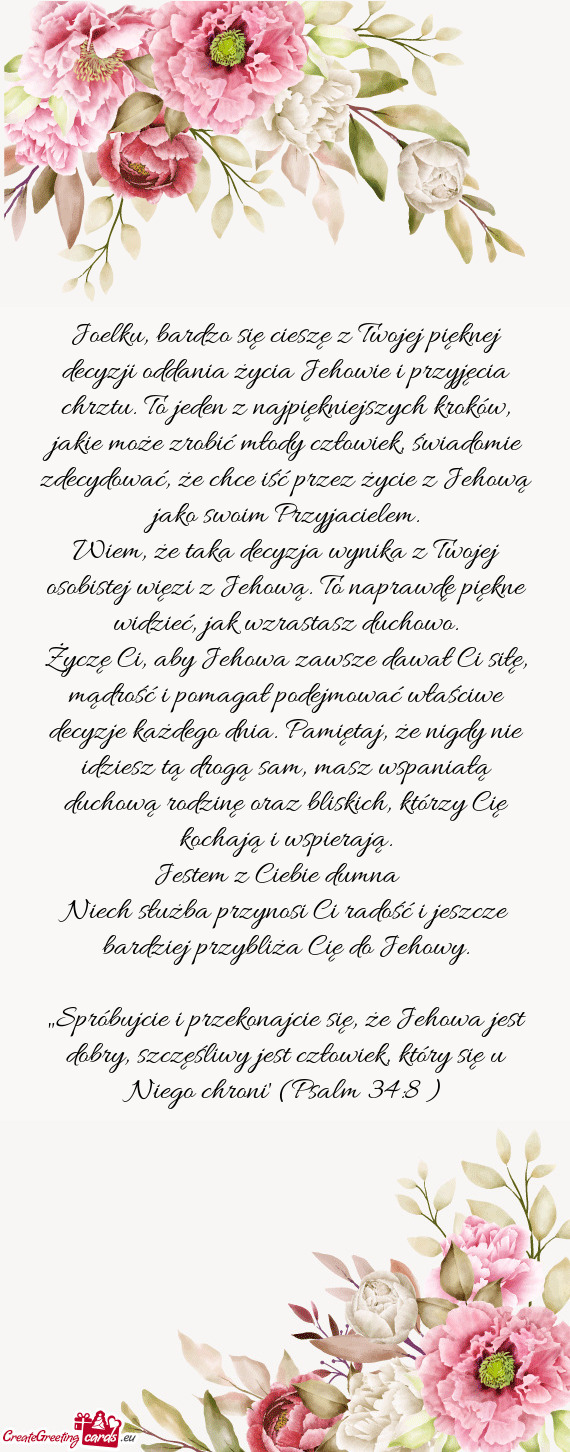 Joelku, bardzo się cieszę z Twojej pięknej
decyzji oddania życia Jehowie i przyjęcia
chrztu. To jeden z najpiękniejszych kroków,
jakie może zrobić młody człowiek, świadomie
zdecydować, że chce iść przez życie z Jehową
jako swoim Przyjacielem.
Wiem, że taka decyzja wynika z Twojej
osobistej więzi z Jehową. To naprawdę piękne
widzieć, jak wzrastasz duchowo.
Życzę Ci, aby Jehowa zawsze dawał Ci siłę,
mądrość i pomagał podejmować właściwe
decyzje każdego dnia. Pamiętaj, że nigdy nie
idziesz tą drogą sam, masz wspaniałą
duchową rodzinę oraz bliskich, którzy Cię
kochają i wspierają.
Jestem z Ciebie dumna
Niech służba przynosi Ci radość i jeszcze
bardziej przybliża Cię do Jehowy.
„Spróbujcie i przekonajcie się, że Jehowa jest
dobry, szczęśliwy jest człowiek, który się u
Niego chroni' ( Psalm 34:8 )
CreateGreeting cards .eu